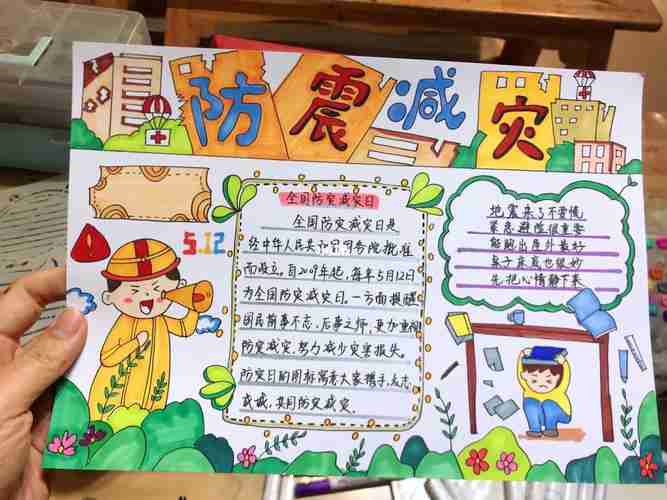 防震减灾
全国防灾减灾日
全国防灾减灾日是
经中华人民共和国国务院批准
而设立。自2009年起，每年5月12日
为全国防灾减灾日。一方面提醒
国民前事不忘，后事之师，更加重视
防灾减灾，努力减少灾害损失。
防灾日的图标寓意大家携手，众志
成城，共同防灾减灾。
5.12
地震来了不要慌
紧急避险很重要
能跑出屋外最好
桌子床底也很妙
先把心情静下来